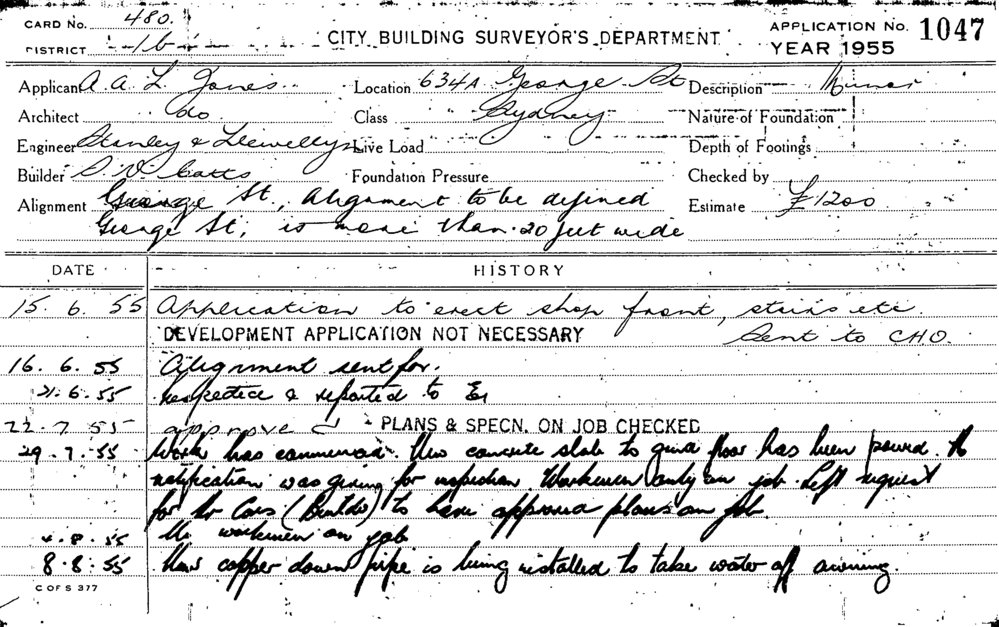 CARD No. 480.
DISTRICT 1b
CITY BUILDING SURVEYOR'S DEPARTMENT
APPLICATION No. 1047
YEAR 1955
Applicant A. A. L. Jones Location 634A George St Description Minor
Architect do Class Sydney Nature of Foundation
Engineer Stanley & Llewellyn Live Load Depth of Footings
Builder Foundation Pressure Checked by
Alignment George St., Alignment to be defined Estimate £1200
George St, is more than 20 feet wide
DATE HISTORY
15. 6. 55 Application to erect shop front, stairs etc.
DEVELOPMENT APPLICATION NOT NECESSARY Sent to CHO.
16. 6. 55 Alignment sent for.
21. 6. 55 Inspected & reported to
22. 7. 55 approved PLANS & SPECN. ON JOB CHECKED
29. 7. 55 Work has commenced. New concrete slab to floor has been poured. No
notification was given for inspection. Workmen only on job. Left request
for Mr (Builder) to have approved plans on job
4. 8. 55 No workmen on job
8. 8. 55 New copper down pipe is being installed to take water off awning.
C OF S 377